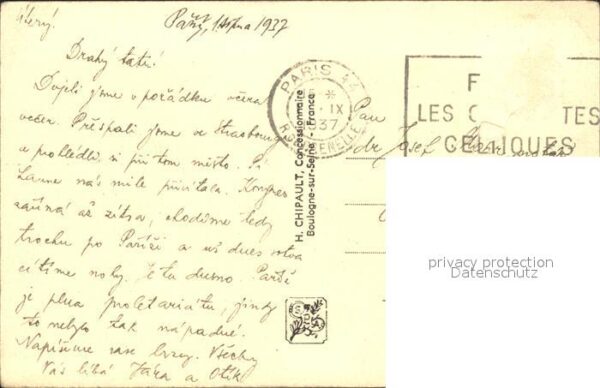 Úterý!
Paříž, 1937
Drahý tatí!
Dojeli jsme v pořádku včera
večer. Přespali jsme ve Strasbourgu
a prohlédli si přitom město. P.
Laune nás mile přivítala. Kongres
začíná až zítra, chodíme tedy
trochu po Paříži a už dnes sotva
cítíme nohy. Je tu dusno. Paříž
je plna proletariátu, jindy
to nebylo tak nápadné.
Napíšeme zase brzy. Všechny
Vás líbá Jára a Otík
PARIS 44
IX
37
R. DE GRENELLE
F
LES C TES
CELTIQUES
Pan
dr Josef
H. CHIPAULT, Concessionnaire
Boulogne-sur-Seine - France
privacy protection
Datenschutz